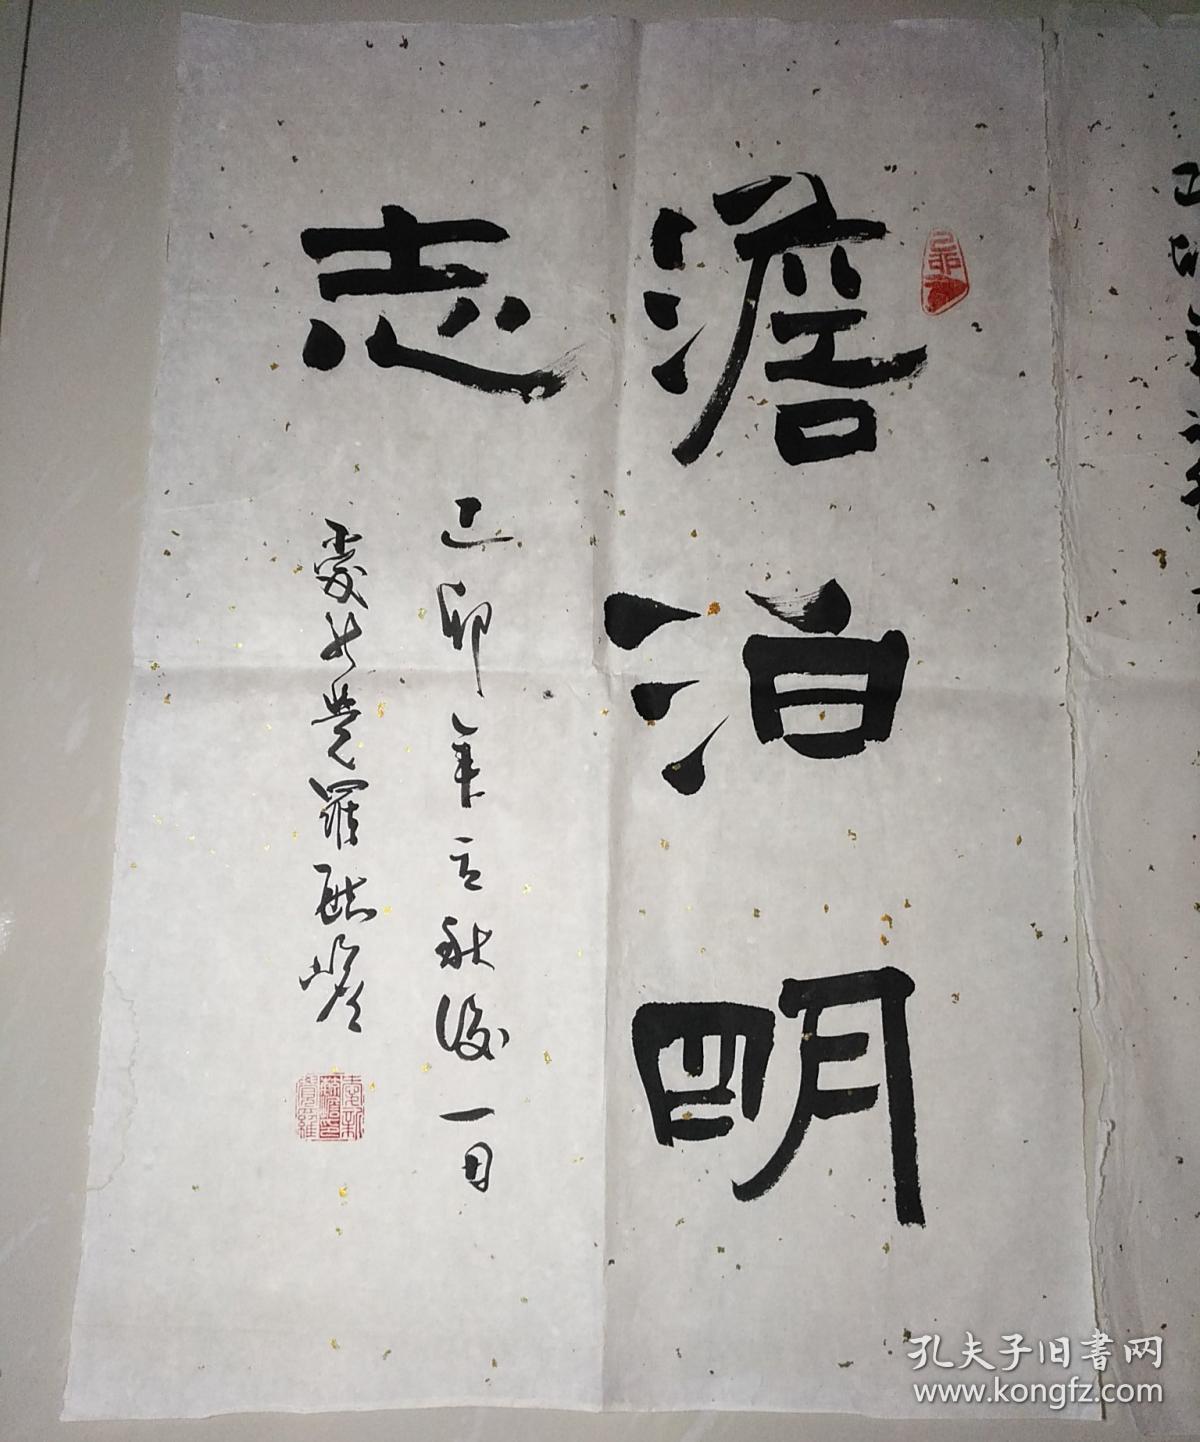 澹泊明
志
己卯年立秋後一日
愛新覺羅
孔夫子旧書网
www.kongfz.com